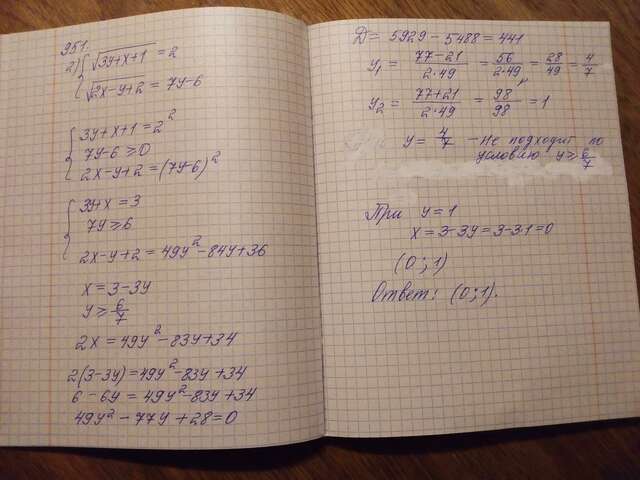 951.
2) { √3y+x+1 = 2
√2x-y+2 = 7y-6
{ 3y+x+1 = 2²
7y-6 ≥ 0
2x-y+2 = (7y-6)²
{ 3y+x = 3
7y ≥ 6
2x-y+2 = 49y² - 84y+36
x = 3-3y
y ≥ 6/7
2x = 49y² - 83y+34
2(3-3y) = 49y² - 83y +34
6 - 6y = 49y² - 83y +34
49y² - 77y + 28 = 0
D = 5929 - 5488 = 441
y₁ = 77-21/2·49 = 56/2·49 = 28/49 = 4/7
y₂ = 77+21/2·49 = 98/98 = 1
y = 4/7 - Не подходит по
условию y ≥ 6/7
При y = 1
x = 3-3y = 3-3·1 = 0
(0; 1)
Ответ: (0; 1).